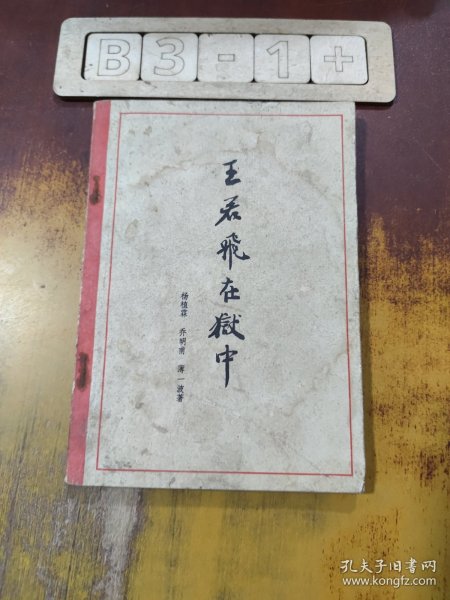 B3-1+
王若飛在獄中
杨植霖 乔明甫 薄一波著
孔夫子旧书网
www.kongfz.com